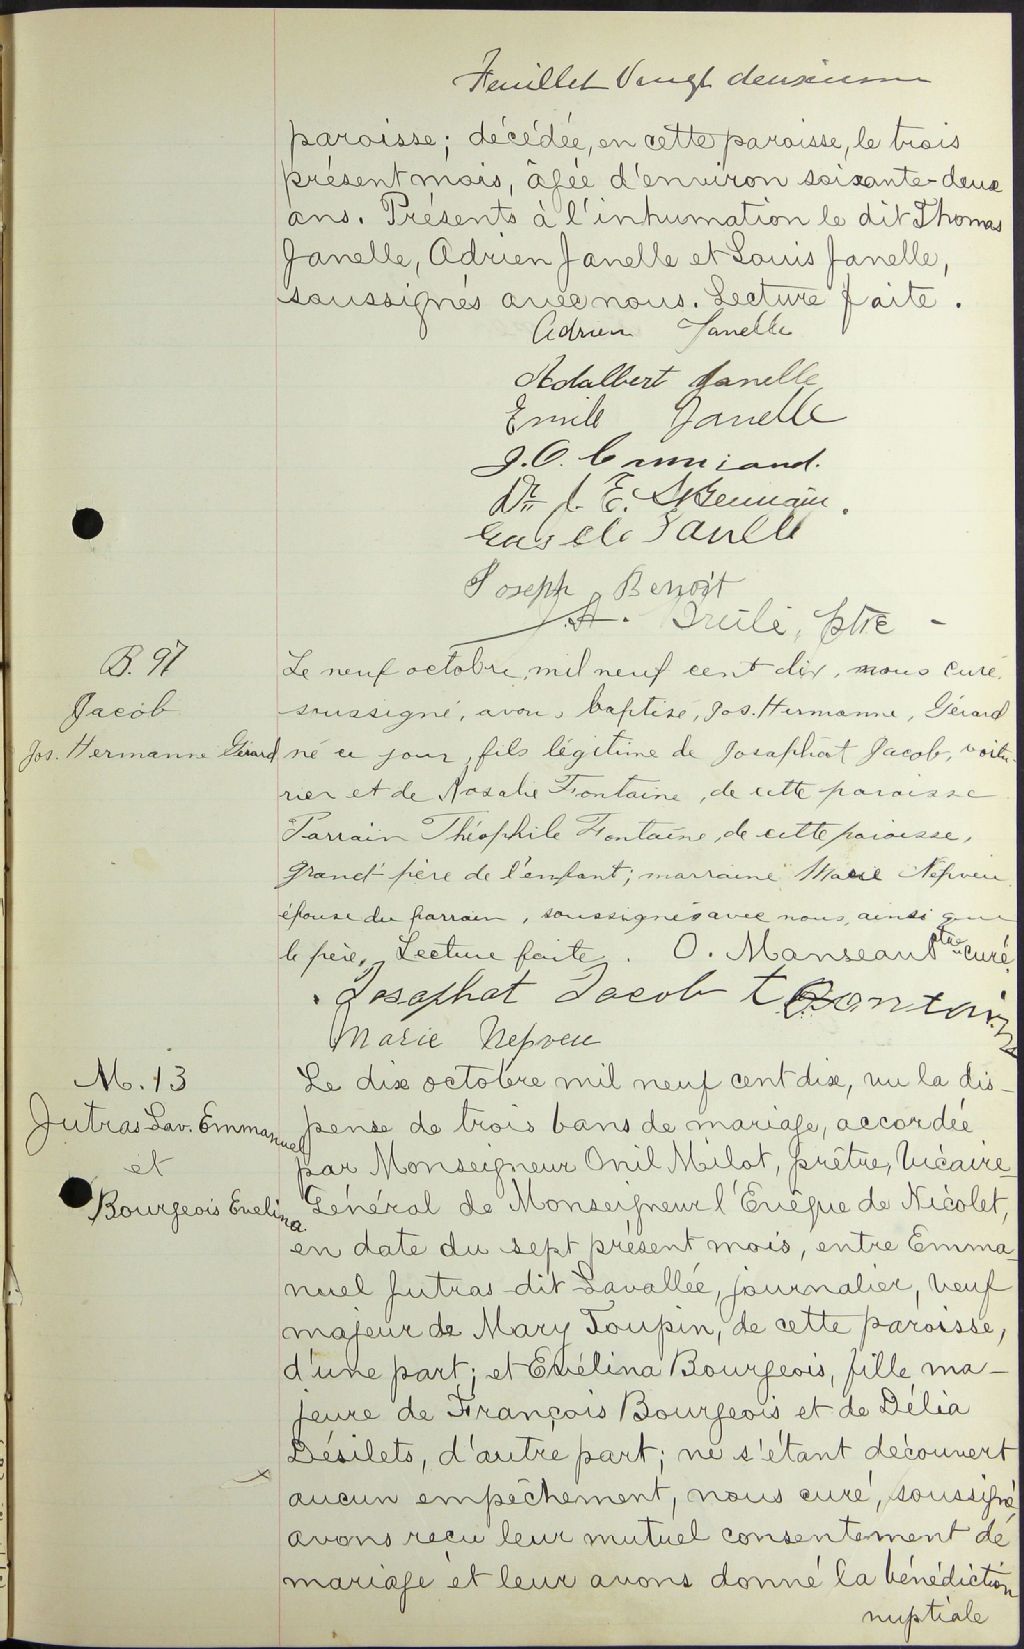 Feuillet Vingt deuxième
paroisse; décédée, en cette paroisse, le trois
présent mois, âgée d'environ soixante-deux
ans. Présents à l'inhumation le dit Thomas
Janelle, Adrien Janelle et Louis Janelle,
soussignés avec nous. Lecture faite.
Adrien Janelle
Adalbert Janelle
Emile Janelle
J. O.
Dr J. E. St Germain.
Janelle
Joseph Benoit
J. A. Brûlé, ptre -
B. 97
Jacob
Jos. Hermanne Gérard
Le neuf octobre, mil neuf cent dix, nous curé,
soussigné, avons baptisé, Jos. Hermanne, Gérard
né ce jour, fils légitime de Josaphat Jacob, voitu-
rier et de Rosalie Fontaine, de cette paroisse
Parrain Théophile Fontaine, de cette paroisse,
grand-père de l'enfant; marraine Marie Nepveu
épouse du parrain, soussignés avec nous, ainsi que
le père. Lecture faite. O. Manseau ptre curé.
Josaphat Jacob t fontaine
Marie Nepveu
M. 13
Jutras Lav. Emmanuel
et
Bourgeois Evelina
Le dix octobre mil neuf cent dix, vu la dis-
pense de trois bans de mariage, accordée
par Monseigneur Onil Milot, prêtre, Vicaire
Général de Monseigneur l'Evêque de Nicolet,
en date du sept présent mois, entre Emma-
nuel Jutras dit Lavallée, journalier, veuf
majeur de Mary Toupin, de cette paroisse,
d'une part; et Evélina Bourgeois, fille ma-
jeure de François Bourgeois et de Délia
Désilets, d'autre part; ne s'étant découvert
aucun empêchement, nous curé, soussigné
avons reçu leur mutuel consentement de
mariage et leur avons donné la bénédiction
nuptiale